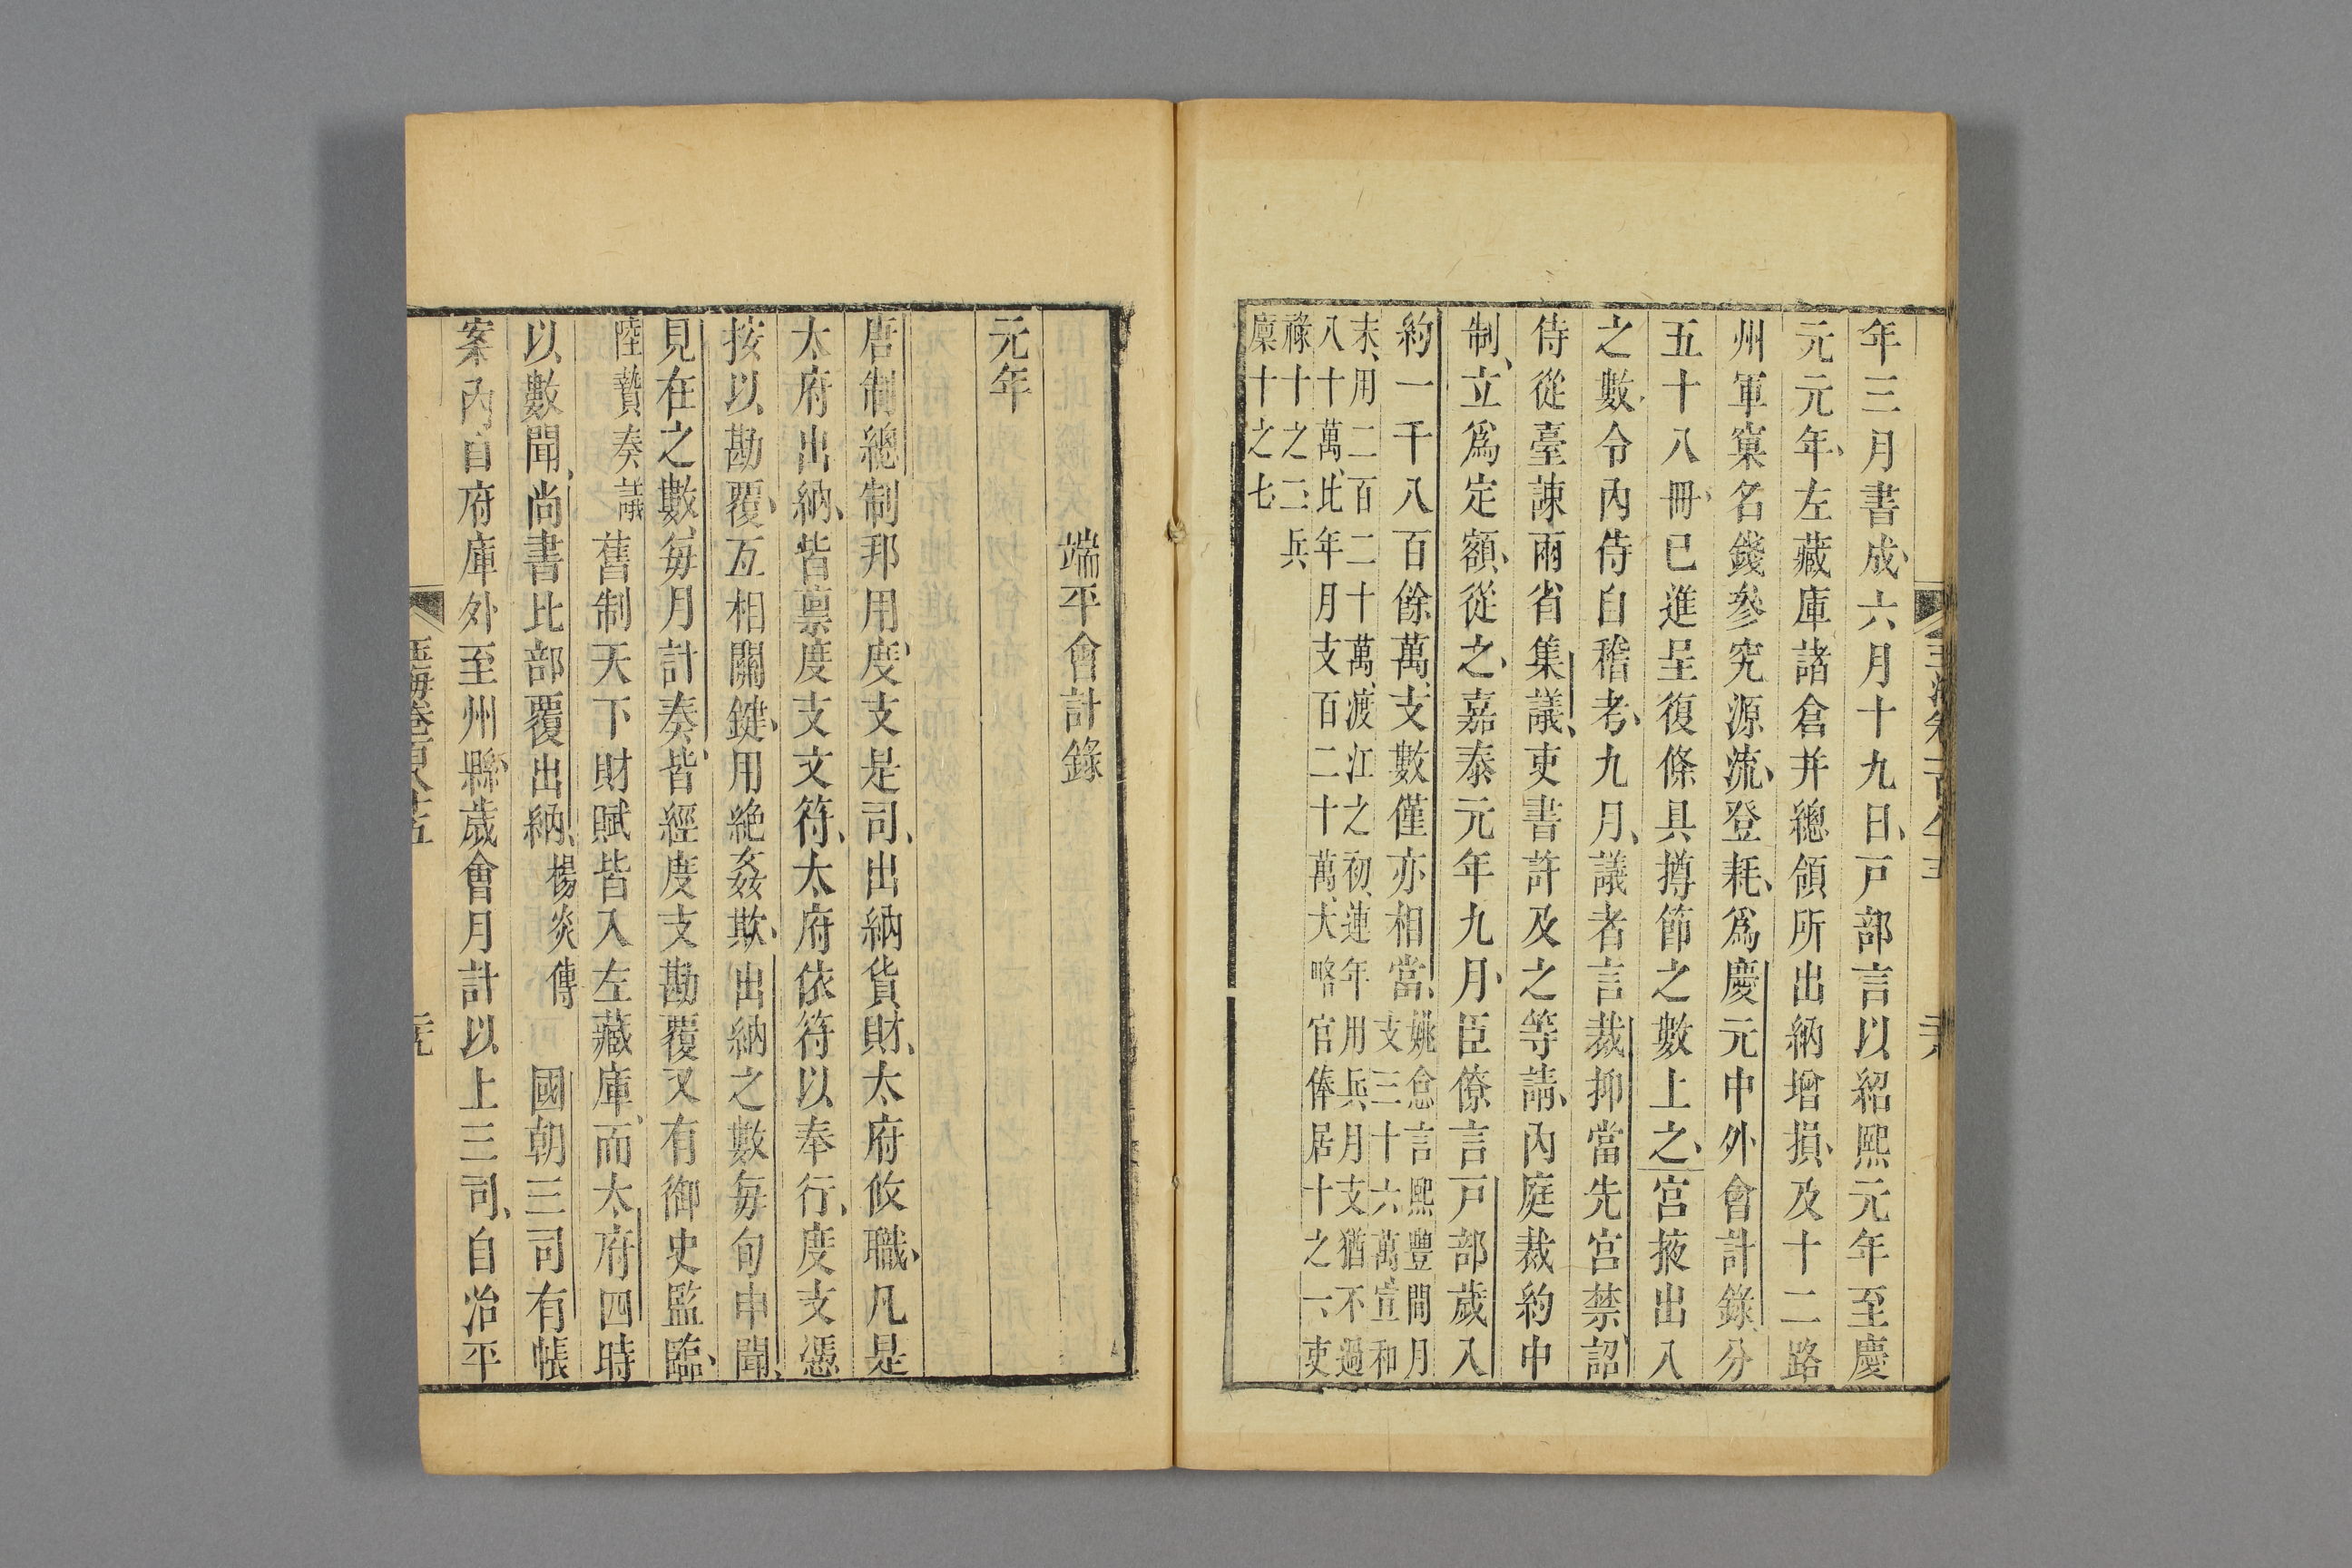 年三月書成六月十九日戸部言以紹熙元年至慶
元元年左藏庫諸倉并總領所出納增損及十二路
州軍窠名錢參究源流登耗爲慶元中外會計錄分
五十八冊已進呈復條具撙節之數上之宮掖出入
之數令內侍自稽考九月議者言裁抑當先宮禁詔
侍從臺諫兩省集議吏書許及之等請內庭裁約中
制立爲定額從之嘉泰元年九月臣僚言戸部歲入
約一千八百餘萬支數僅亦相當姚愈言熙豐間月
支三十六萬宣和
末用二百二十萬渡江之初連年用兵月支猶不過
八十萬比年月支百二十萬大略官俸居十之一吏
祿十之二兵
廩十之七
端平會計錄
元年
唐制總制邦用度支是司出納貨財太府攸職凡是
太府出納皆稟度支文符太府依符以奉行度支憑
按以勘覆互相關鍵用絶姦欺出納之數每旬申聞
見在之數每月計奏皆經度支勘覆又有御史監臨
陸贄奏議舊制天下財賦皆入左藏庫而太府四時
以數聞尚書比部覆出納楊炎傳 國朝三司有帳
案內自府庫外至州縣歲會月計以上三司自治平